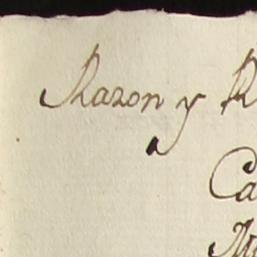 Razon y R
Ca